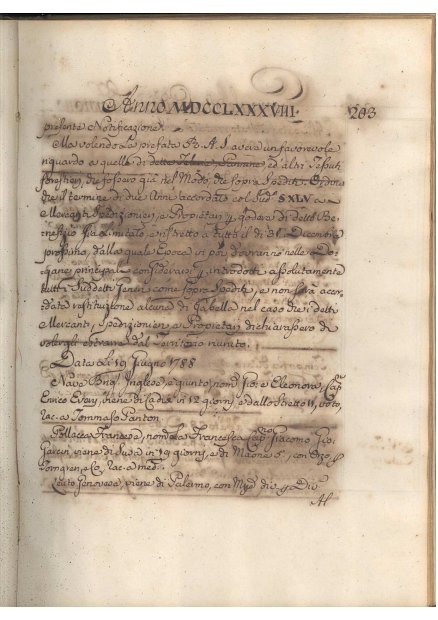 Anno MDCCLXXXVIII. 203
presente Notificazione.
Ma volendo la prefata S. A. S. avere un favorevole
riguardo a quelle di dette Telerie, Germane ed altri Tessuti
forestieri, che fossero già nel Modo, che sopra Spediti: Ordina
che il termine di due Anni accordati col Sud. § XLV a
Mercanti Spedizionieri, e Propietarj p. godere di detto Be-
nefizio sia limitato, e ristretto a tutto il dì 31. Decembre
prossimo, dalla quale Epoca in poi dovranno nelle Do-
gane principali considerarsi p. introdotti assolutamente
tutti i Suddetti Generi come sopra Spediti, e non sarà accor-
data restituzione alcuna di Gabella nel caso che i detti
Mercanti, Spedizionieri, e Propietarj dichiarassero di
volergli estrarre dal Territorio riunito.
Data li 19 Giugno 1788
Nave Brig. Inglese, e quinto, nom. Gio. e Eleonora, Cap.
Enrico viene di Cadice in 12 giorni, e dallo Stretto 11, voto,
rac. a Tommaso Panton.
Pollacca Francese, nom. La Francesca Cap. Giacomo Gio.
viene di Susa in 19 giorni, e di Maone 5, con Orzo, p.
e Co. rac. a med.
Genovese, viene di Palermo, con p. Div.
Al